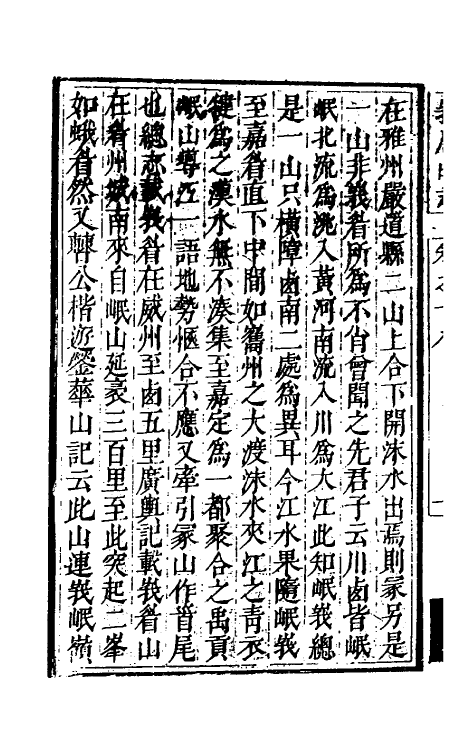 在雅州嚴道縣二山上合下開沬水出焉則冢另是
一山非峩眉所為不肖曾聞之先君子云川鹵皆岷
岷北流為洮入黃河南流入川為大江此知岷峩總
是一山只橫障鹵南二處為異耳今江水果隨岷峩
至嘉眉直下中間如嶲州之大渡沬水夾江之青衣
犍為之漢水無不湊集至嘉定為一都聚合之禹貢
岷山導江一語地勢恆合不應又牽引冢山作首尾
也總志載峩眉在威州至鹵五里廣輿記載峩眉山
在眉州城南來自岷山延袤三百里至此突起二峯
如蛾眉然又轉公楷遊瑩華山記云此山連峩岷嶺